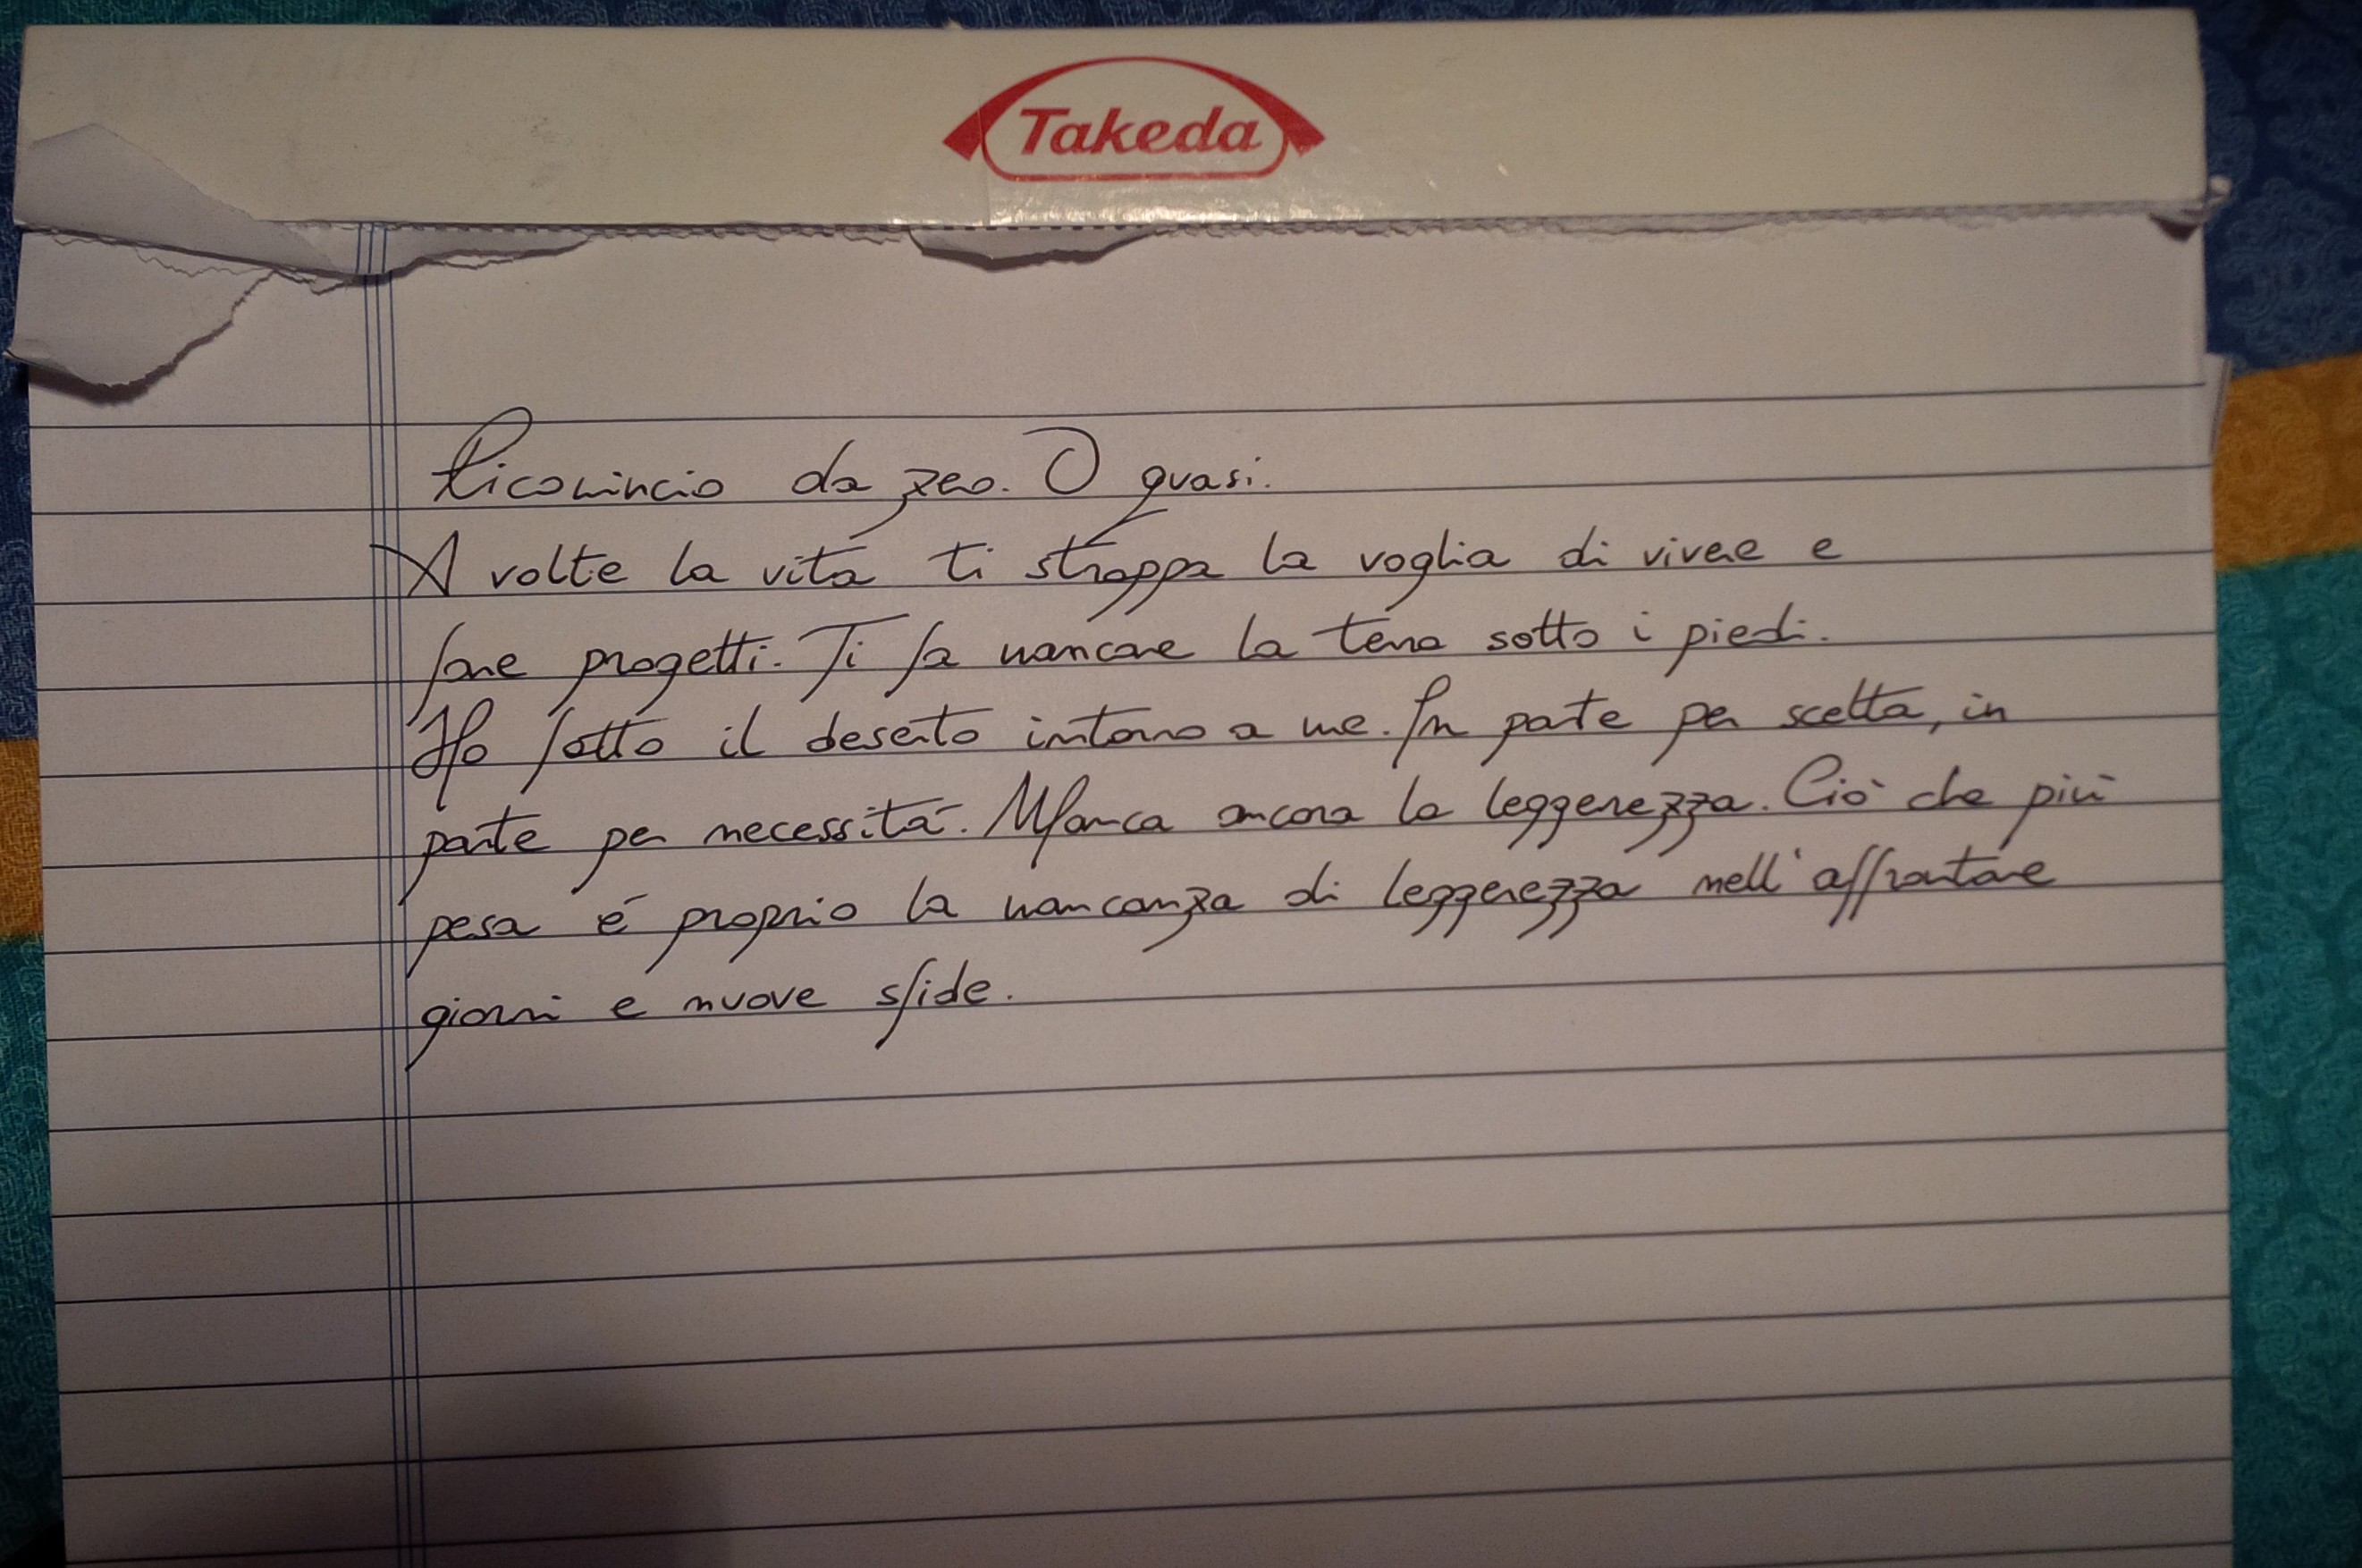 Takeda
Ricomincio da zero. O quasi.
A volte la vita ti strappa la voglia di vivere e
fare progetti. Ti fa mancare la terra sotto i piedi.
Ho fatto il deserto intorno a me. In parte per scelta, in
parte per necessitá. Manca ancora la leggerezza. Ció che più
pesa é proprio la mancanza di leggerezza nell'affrontare
giorni e nuove sfide.